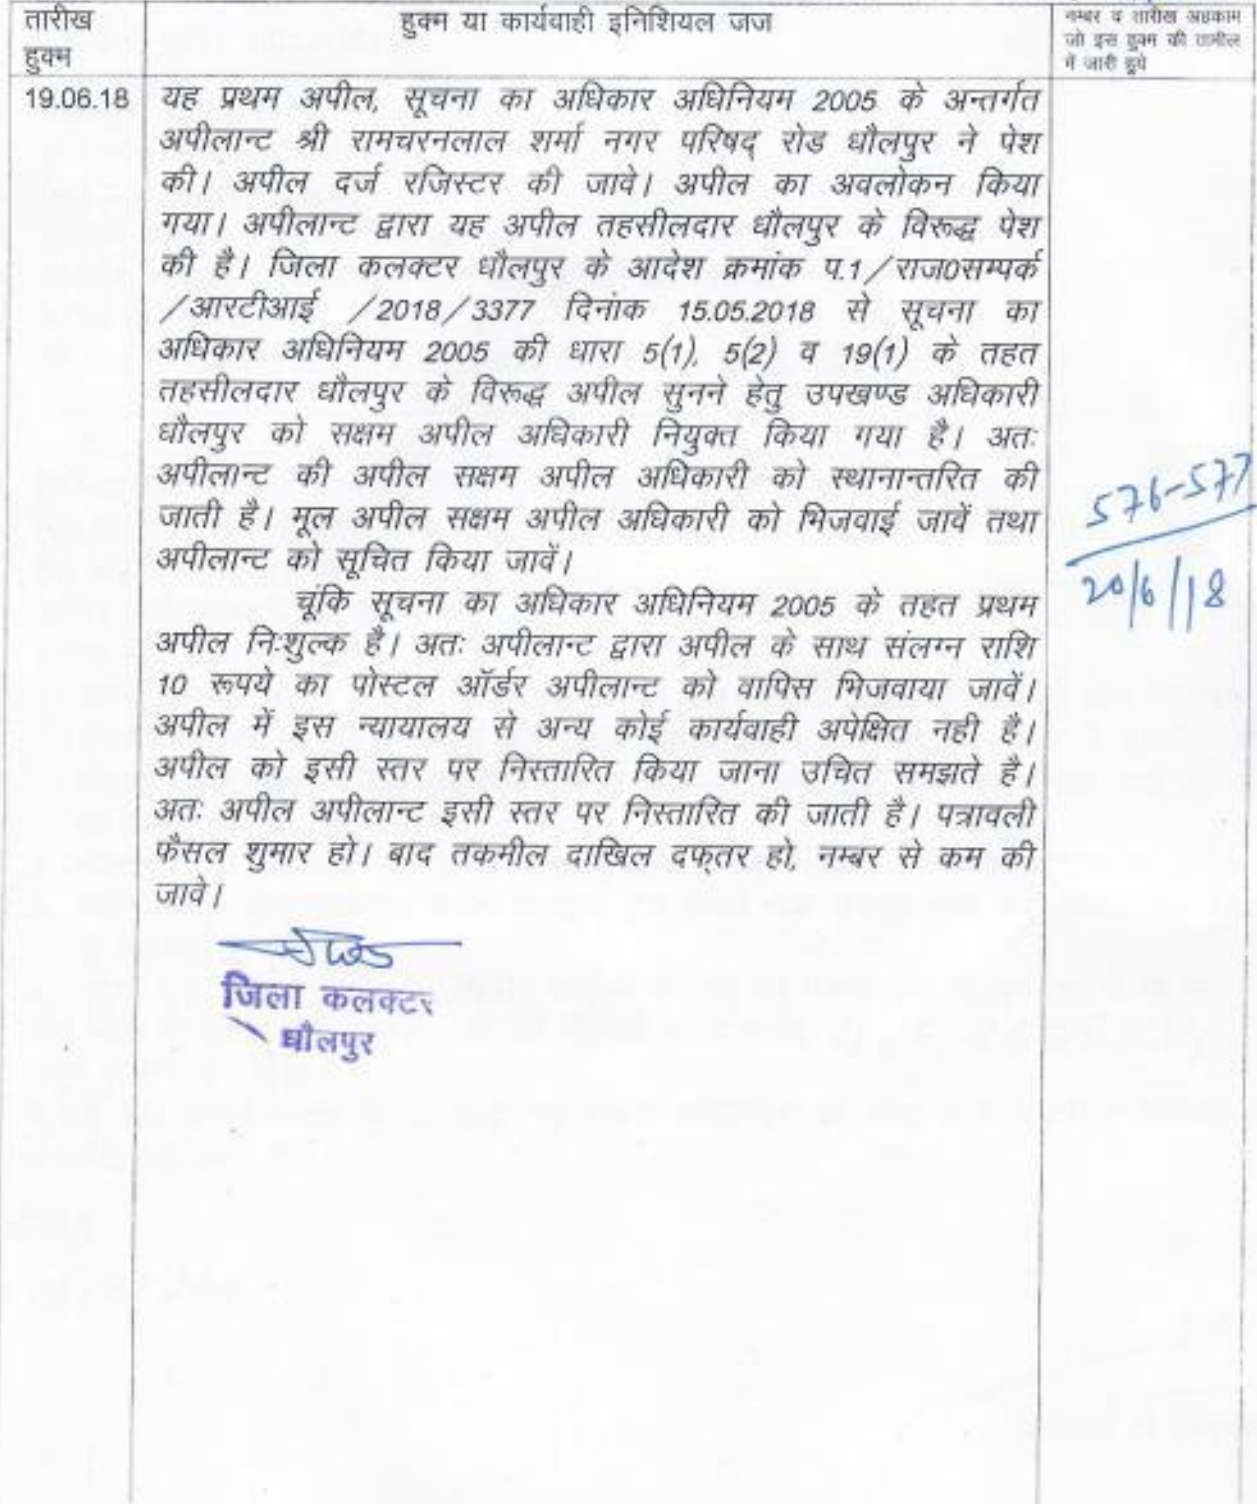 तारीख
हुक्म
हुक्म या कार्यवाही इनिशियल जज
नम्बर व तारीख अहकाम
जो इस हुक्म की तामील
में जारी हुये
19.06.18
यह प्रथम अपील, सूचना का अधिकार अधिनियम 2005 के अन्तर्गत
अपीलान्ट श्री रामचरनलाल शर्मा नगर परिषद् रोड धौलपुर ने पेश
की। अपील दर्ज रजिस्टर की जावे। अपील का अवलोकन किया
गया। अपीलान्ट द्वारा यह अपील तहसीलदार धौलपुर के विरूद्ध पेश
की है। जिला कलक्टर धौलपुर के आदेश क्रमांक प.1/राज0सम्पर्क
/आरटीआई /2018/3377 दिनांक 15.05.2018 से सूचना का
अधिकार अधिनियम 2005 की धारा 5(1), 5(2) व 19(1) के तहत
तहसीलदार धौलपुर के विरूद्ध अपील सुनने हेतु उपखण्ड अधिकारी
धौलपुर को सक्षम अपील अधिकारी नियुक्त किया गया है। अतः
अपीलान्ट की अपील सक्षम अपील अधिकारी को स्थानान्तरित की
जाती है। मूल अपील सक्षम अपील अधिकारी को भिजवाई जावें तथा
अपीलान्ट को सूचित किया जावें।
चूंकि सूचना का अधिकार अधिनियम 2005 के तहत प्रथम
अपील निःशुल्क है। अतः अपीलान्ट द्वारा अपील के साथ संलग्न राशि
10 रूपये का पोस्टल ऑर्डर अपीलान्ट को वापिस भिजवाया जावें।
अपील में इस न्यायालय से अन्य कोई कार्यवाही अपेक्षित नही है।
अपील को इसी स्तर पर निस्तारित किया जाना उचित समझते है।
अतः अपील अपीलान्ट इसी स्तर पर निस्तारित की जाती है। पत्रावली
फैसल शुमार हो। बाद तकमील दाखिल दफ्तर हो, नम्बर से कम की
जावे।
जिला कलक्टर
धौलपुर
576-577
20/6/18